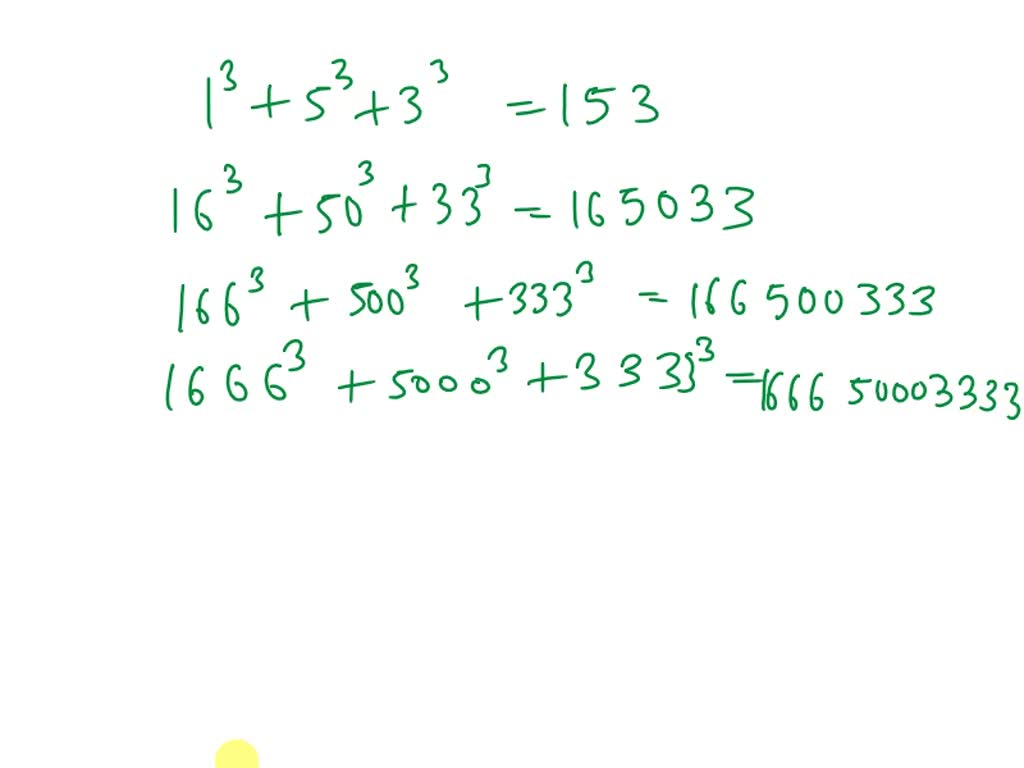 1³ + 5³ + 3³ = 153
16³ + 50³ + 33³ = 165033
166³ + 500³ + 333³ = 166500333
1666³ + 5000³ + 3333³ = 1666 50003333